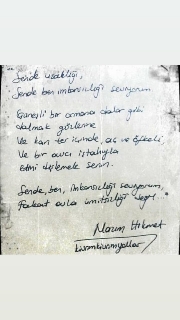 Sende uzaklığı,
Sende ben imkansızlığı seviyorum
Güneşli bir ormana dalar gibi
dalmak gözlerine
Ve kan ter içinde, aç ve öfkeli,
Ve bir avcı iştahıyla
etini dişlemek senin.
Sende, ben, imkansızlığı seviyorum,
Fakat asla ümitsizliği değil.
Nazım Hikmet